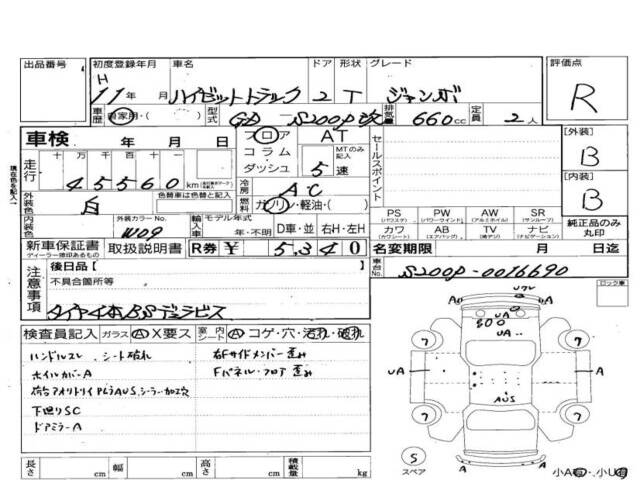 出品番号
初度登録年月 車名 ドア 形状 グレード
H
11年 月 ハイゼットトラック 2 T ジャンボ
評価点
R
車歴 自家用・( ) 型式 GD-S200P改 排気量 660cc 定員 2人
車検 年 月 日
フロア AT
コラム・ MTのみ記入
ダッシュ 5速
セールスポイント
[外装]
B
[内装]
B
純正品のみ丸印
現在色を記入→
走行 十万 万 千 百 十
45560km
冷房 AC
燃料 ガソリン・軽油・( )
外装色 白 色替車は色替と記入
内装色 外装カラーNo. W09
輸入車 モデル年式 年・不明 D車・並 右H・左H
PS PW AW SR
(パワステ) (パワーウインド) (アルミホイル) (サンルーフ)
カワ AB TV ナビ
(カワシート) (エアバッグ) (純アジ) (ナビゲーション)
新車保証書 取扱説明書 R券 ¥ 5,340
ディーラー捺印あるもの
名変期限 月 日迄
車台No. S200P-0016690
注意事項
後日品【 】
不具合箇所等
タイヤ4本BSデュラビス
ロック車
検査員記入 ガラス Ⓐ X要ス 室内シート Ⓐ コゲ・穴・汚れ・破れ
ハンドルスレ、シート破れ
右Fサイドメンバー歪み
ホイルカバーA
Fパネル・フロア歪み
下廻りSC
ドアミラーA
UA
UA
A
AUS
7
7
7
7
S
スペア
A
A
小A有・小U有
長さ cm 幅 cm 高さ cm 積載量 kg